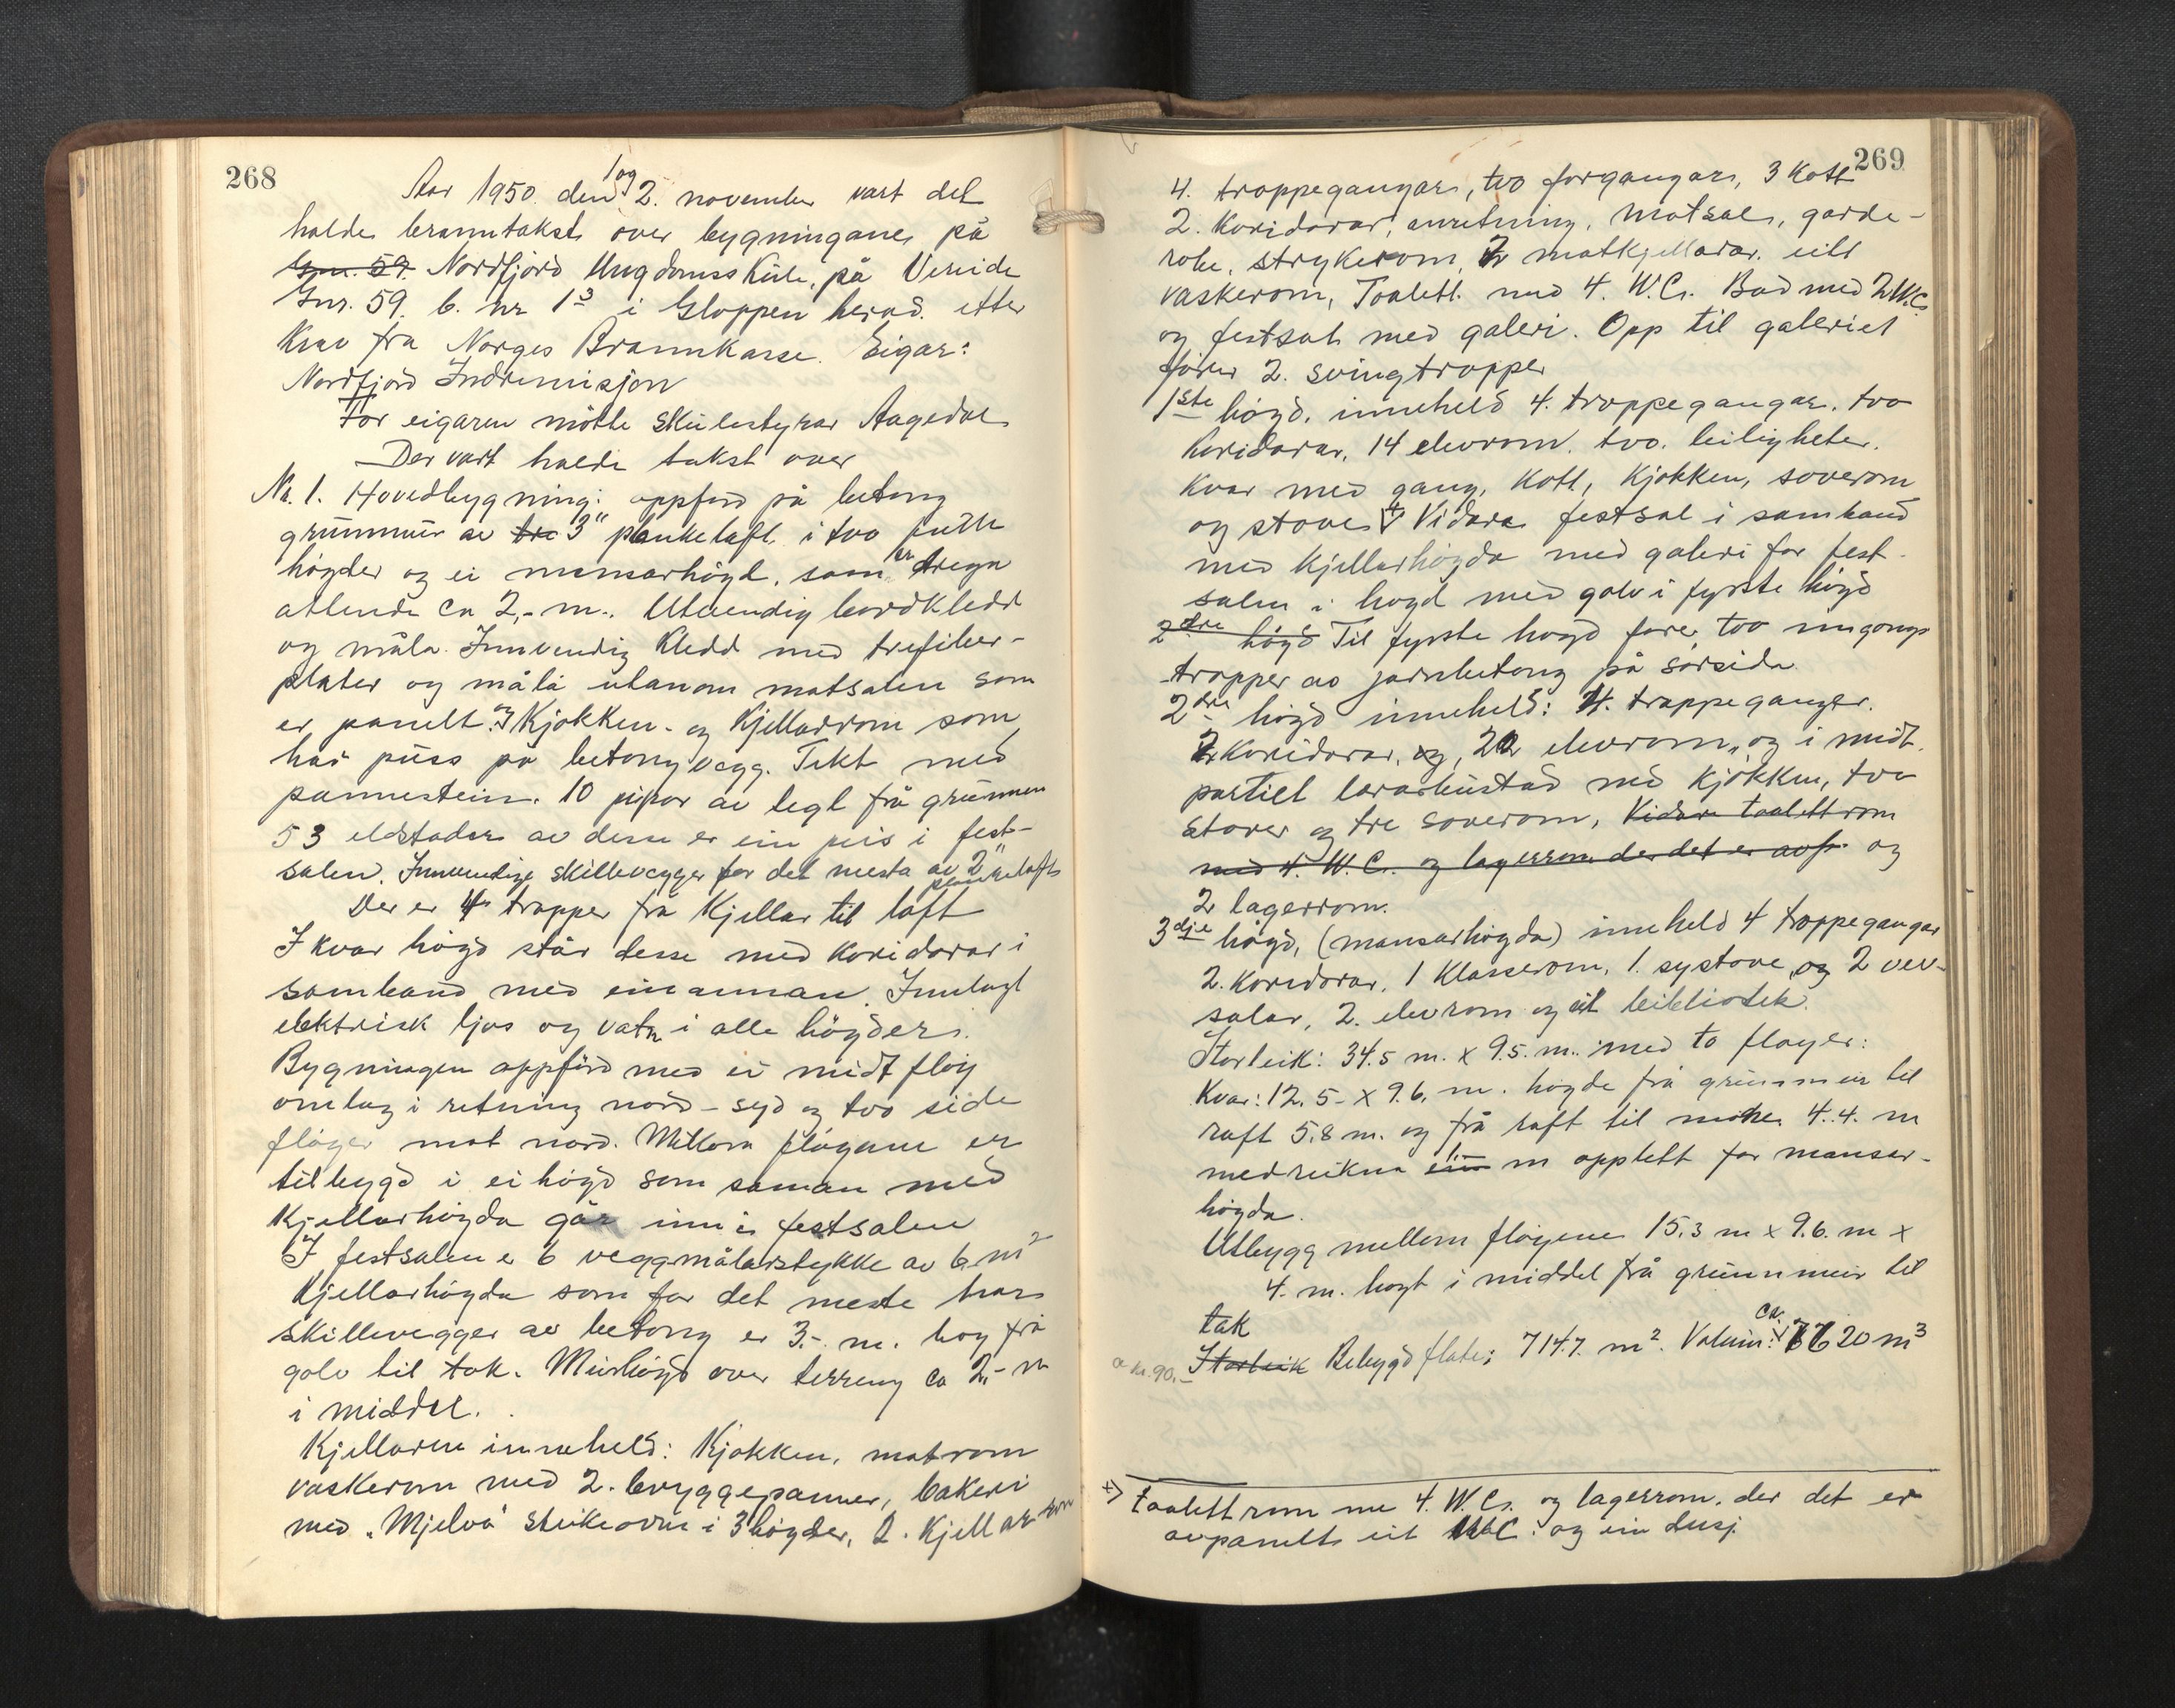 268
Aar 1950. den 1 og 2. november vart det
halde branntakst over bygningane på
Gnr. 59. Nordfjord Ungdomsskule, på Vereide
Gnr. 59. b. nr 1³ i Gloppen herad. etter
Krav fra Norges Brannkasse. Eigar:
Nordfjord Indremisjon
For eigaren møtte skulestyrar Aagedal
Der vart halde takst over
Nr. 1. Hovedbygning: oppførd på betong
grunnmur av tre 3" plankelaft i tvo fulle
högder og ei mansarhögd, som er dregen
attende ca 2,- m. Utvendig bordkledd
og måla. Innvendig kledd med trefiber-
plater og måla utanom matsalen som
er panelt og Kjøkken- og Kjellarrom som
har puss på betongvegg. Tekt med
pannestein. 10 pipor av tegl frå grunnen
53 eldstader av desse er ein peis i fest-
salen. Innvendige skillevegger for det mesta av 2"
plankelaft
Der er 4 trapper frå Kjellar til loft
I kvar högd står desse med koridorar i
samband med einannan. Innlagt
elektrisk ljos og vatn i alle högder.
Bygningen oppførd med ei midtfløy
omlag i retning nord - syd og tvo side
fløyer mot nord. Millom fløyane er
tilbygd i ei högd som saman med
Kjellarhögda går inn i festsalen
I festsalen er 6 veggmålarstykke av 6 m²
Kjellarhögda som for det meste har
skillevegger av betong er 3.- m. høg frå
golv til tak. Murhögd over terreng ca 2,- m
i middel.
Kjellaren inneheld: Kjøkken, matrom
vaskerom med 2. bryggepanner, bakeri
med "Mjelva" steikeovn i 3 högder, 2. Kjellarrom
269
4. trappegangar, tvo forgangar, 3 Kott
2. Koridorar, anretning, matsal, garde-
robe, strykerom, 2 matkjellarar. eitt
vaskerom, Toalett. med 4. W.C. Bad med 2 W.C.
og festsal med galeri. Opp til galeriet
fører 2. svingtrapper
1ste högd. inneheld 4. trappegangar. tvo
koridorar, 14 elevrom. tvo. leiligheter.
Kvar med gang, Kott, Kjøkken, soverom
og stove. + Vidare festsal i samband
med Kjellarhögda med galeri for fest-
salen i høgd med golv i fyrste högd
2dre högd Til fyrste høgd fører tvo inngongs
trapper av jarnbetong på sørsida
2dre högd inneheld: 4. trappeganger.
2 Koridorar, og, 22 elevrom, og i midt
partiet lærarbustad med Kjøkken, tvo
stover og tre soverom, Vidare toalettrom
med 4. W.C. og lagerrom der det er avp. og
2 lagerrom.
3dje högd, (mansarhögda) inneheld 4 trappegangar
2. Koridorar, 1 Klasserom, 1. systove, og 2 vev-
salar, 2. elevrom og eit bibliotek.
Storleik: 34.5 m. x 9.5. m. med to fløyer:
Kvar: 12.5- x 9.6. m. høgde frå grunnmur til
raft 5.8 m. og frå raft til møne 4.4. m
medrekna ein m opplett for mansar-
högda.
Utbygg mellom fløyene 15.3 m x 9.6. m x
4. m. høgt i middel frå grunnmur til
tak
a kr. 90.- Storleik Bebygd flate: 714.7. m². Volum: ca. 7620 m³
+) toalettrom me 4. W.C. og lagerrom. der det er
avpanelt eit W.C. og ein dusj.